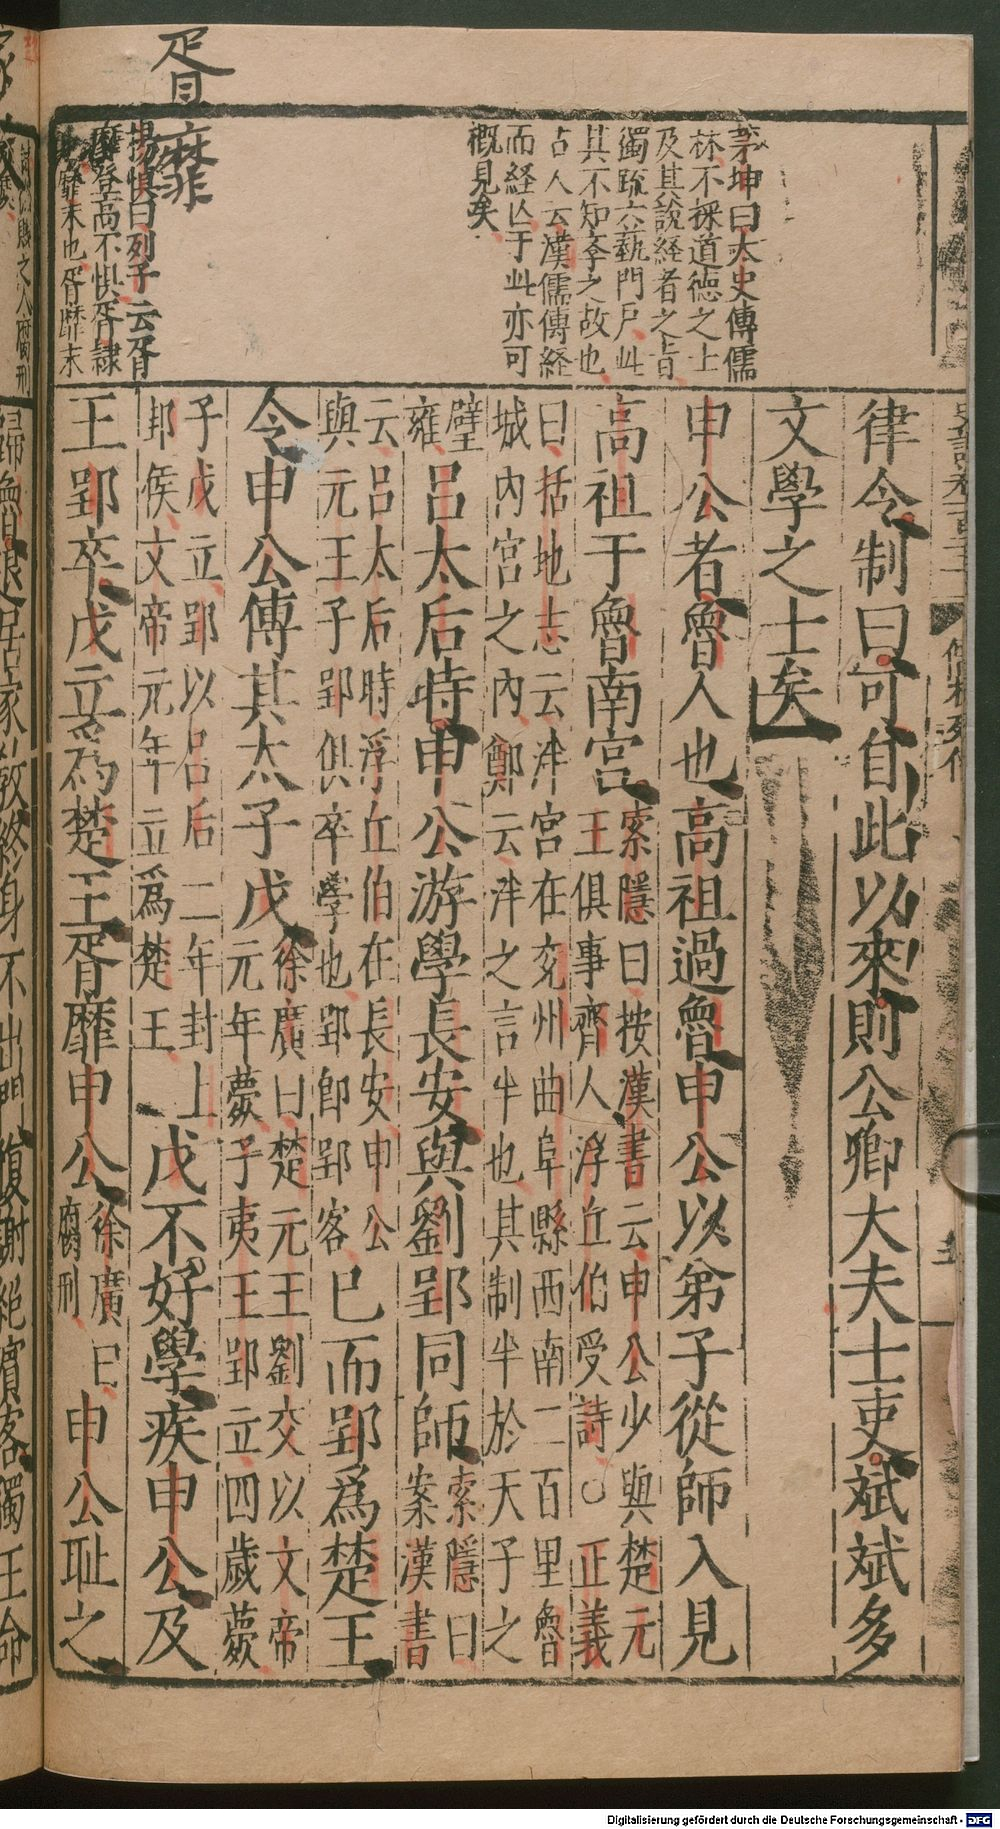 胥靡
茅坤曰太史傳儒
林不採道德之士
及其說經者之旨
獨疏六藝門戶此
其不知季之故也
占人云漢儒傳經
而經亡于此亦可
概見矣
楊慎曰列子云胥
靡登高不惧胥隷
也靡末也胥靡末
律令制曰可自此以來則公卿大夫士吏斌斌多
文學之士矣
申公者魯人也高祖過魯申公以弟子從師入見
高祖于魯南宮
索隱曰按漢書云申公少與楚元
王俱事齊人浮丘伯受詩○正義
曰括地志云泮宮在兖州曲阜縣西南二百里魯
城內宮之內鄭云泮之言半也其制半於天子之
璧
雍
呂太后時申公游學長安與劉郢同師
索隱曰
案漢書
云呂太后時浮丘伯在長安申公
與元王子郢俱卒學也郢卽郢客
巳而郢爲楚王
令申公傳其太子戊
徐廣曰楚元王劉交以文帝
元年薨子夷王郢立四歲薨
子戊立郢以呂后二年封上
邳侯文帝元年立爲楚王
戊不好學疾申公及
王郢卒戊立爲楚王胥靡申公
徐廣曰
腐刑
申公耻之
歸魯退居家教終身不出門復謝絕賓客獨王命